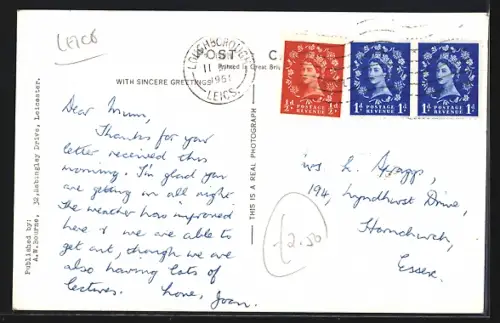 LEICS
LOUGHBOROUGH
11
1961
LEICS.
POST C
Printed in Great Brit
WITH SINCERE GREETINGS
½d POSTAGE REVENUE ½d
1d POSTAGE REVENUE 1d
1d POSTAGE REVENUE 1d
Dear Mum,
Thanks for your
letter received this
morning. I'm glad you
are getting on all night
The weather has improved
here & we are able to
get out, though we are
also having lots of
lectures. Love, Joan.
THIS IS A REAL PHOTOGRAPH
Published by:
A.W.Bourne, 32, Babingley Drive, Leicester.
Mrs L.
194, Lyndhurst Drive,
Hornchurch,
Essex.
£2.50